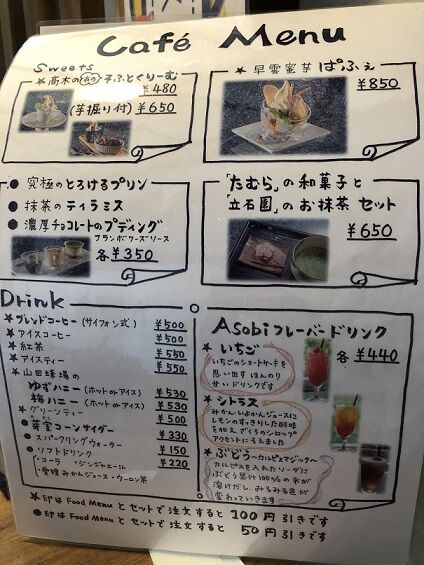 Café Menu
Sweets
★高木の そふとくりーむ
¥480
(芋掘り付) ¥650
★早雲蜜芋ぱふぇ
¥850
● 究極のとろけるプリン
● 抹茶のティラミス
● 濃厚チョコレートのプディング
フランボワーズソース
各¥350
「たむら」の和菓子と
「立石園」のお抹茶セット
¥650
Drink
★ブレンドコーヒー (サイフォン式) ¥500
★アイスコーヒー ¥500
★紅茶 ¥550
★アイスティー ¥550
★山田蜂場の
ゆずハニー (ホット or アイス) ¥530
梅ハニー (ホット or アイス) ¥530
★グリーンティー ¥500
●コーンサイダー ¥330
●スパークリングウォーター ¥150
●ソフトドリンク ¥220
・コーラ ・ジンジャエール
・愛媛みかんジュース・ウーロン茶
Asobiフレーバードリンク
各¥440
★いちご
いちごのショートケーキを
思い出す ほんのり
甘いドリンクです
★シトラス
みかんいよかんジュースに
レモンのすっきりした酸味
を加え
アクセントにそえました
★ぶどう〜カルピスマジックへ
カルピスを入れたソーダに
ぶどう果汁100%の氷が
溶けだし、みるみる色が
変わっていきます
★印は Food Menu とセットで注文すると 100円引きです
●印は Food Menu とセットで注文すると 50円引きです